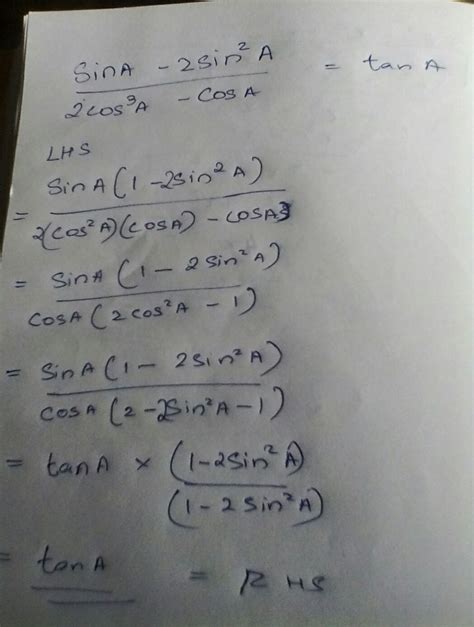 sinA - 2sin²A / 2cos³A - cosA = tanA
LHS
= sinA(1-2sin²A) / 2(cos²A)(cosA) - cosA
= sinA(1-2sin²A) / cosA(2cos²A - 1)
= sinA(1- 2sin²A) / cosA(2-2sin²A-1)
= tanA × (1-2sin²A) / (1-2sin²A)
= tanA = RHS